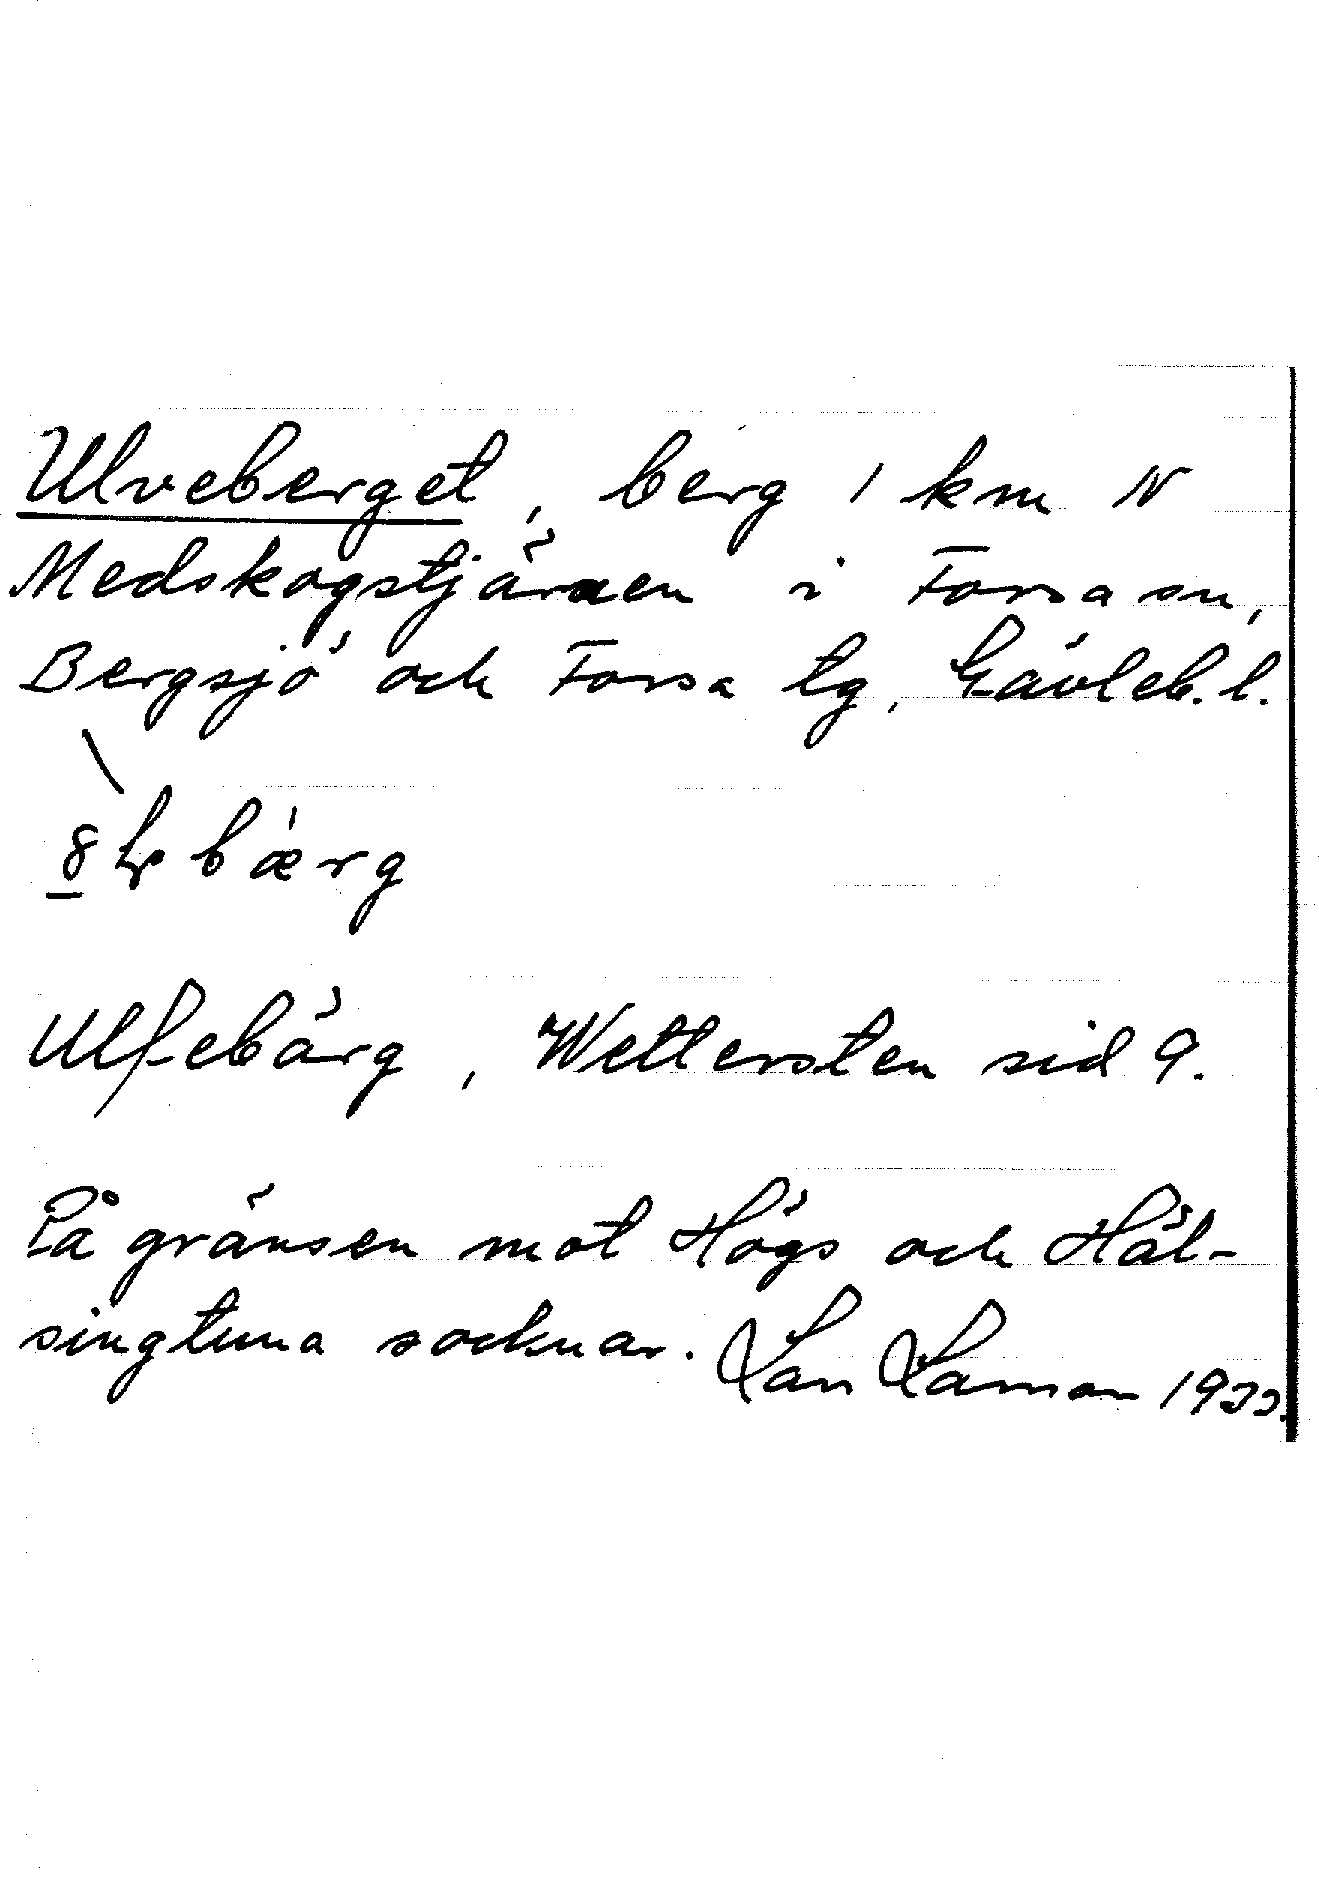 Ulveberget, berg 1 km N
Medskogstjärnen i Forsa sn,
Bergsjö och Forsa tg, Gävleb. l.
bærg
Ulfebärg, Wettersten sid 9.
På gränsen mot Högs och Häl-
singtuna socknar.